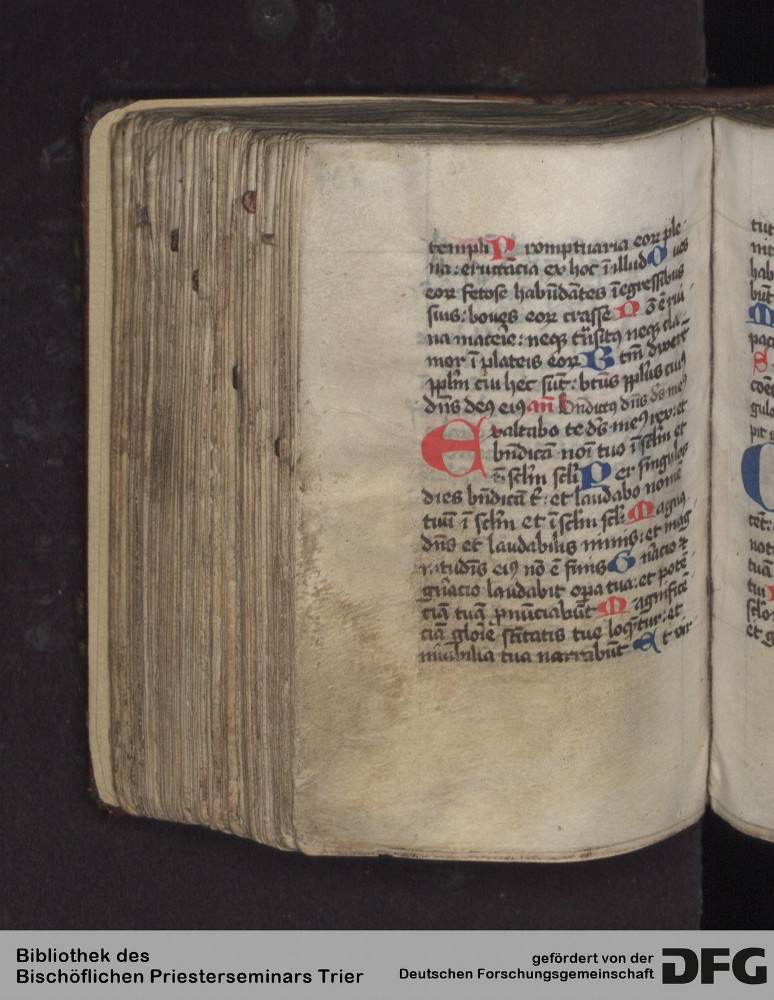 templi Promptuaria eoꝝ ple-
na: eructātia ex hoc ī illud Oues
eoꝝ fetose habūdātes ī egressibus
suis: boues eoꝝ crasse Nō ē rui
na macerie: neqꝫ trāsitꝰ neqꝫ cla-
mor ī plateis eoꝝ Btm̄ dixerūt
pplm̄ cui hec sūt: btūs ppl̓us cuiꝰ
dn̄s deꝰ eiꝰ an̄ Bn̄dictꝰ dn̄s ds̄ meꝰ
Exaltabo te ds̄ meꝰ rex: et
bn̄dicā noī tuo ī sclm̄ et
ī sclm̄ scli Per singulos
dies bn̄dicā t̄: et laudabo nomē
tuū ī sclm̄ et ī sclm̄ scli Magnꝰ
dn̄s et laudabilis nimis: et mag
nitudīs eiꝰ nō ē finis Gn̄acio ⁊
gn̄acio laudabit opa tua: et potē
ciā tuā pn̄ūciabūt Magnificē
ciā gloīe sc̄itatis tue loqn̄tur: et
mirabilia tua narrabūt Et vir
tut
nit
hab
būt
pac
coē
gulo
pit
C
cēt:
not
tuā
tui
sclo
et g
Bibliothek des
Bischöflichen Priesterseminars Trier
gefördert von der
Deutschen Forschungsgemeinschaft
DFG